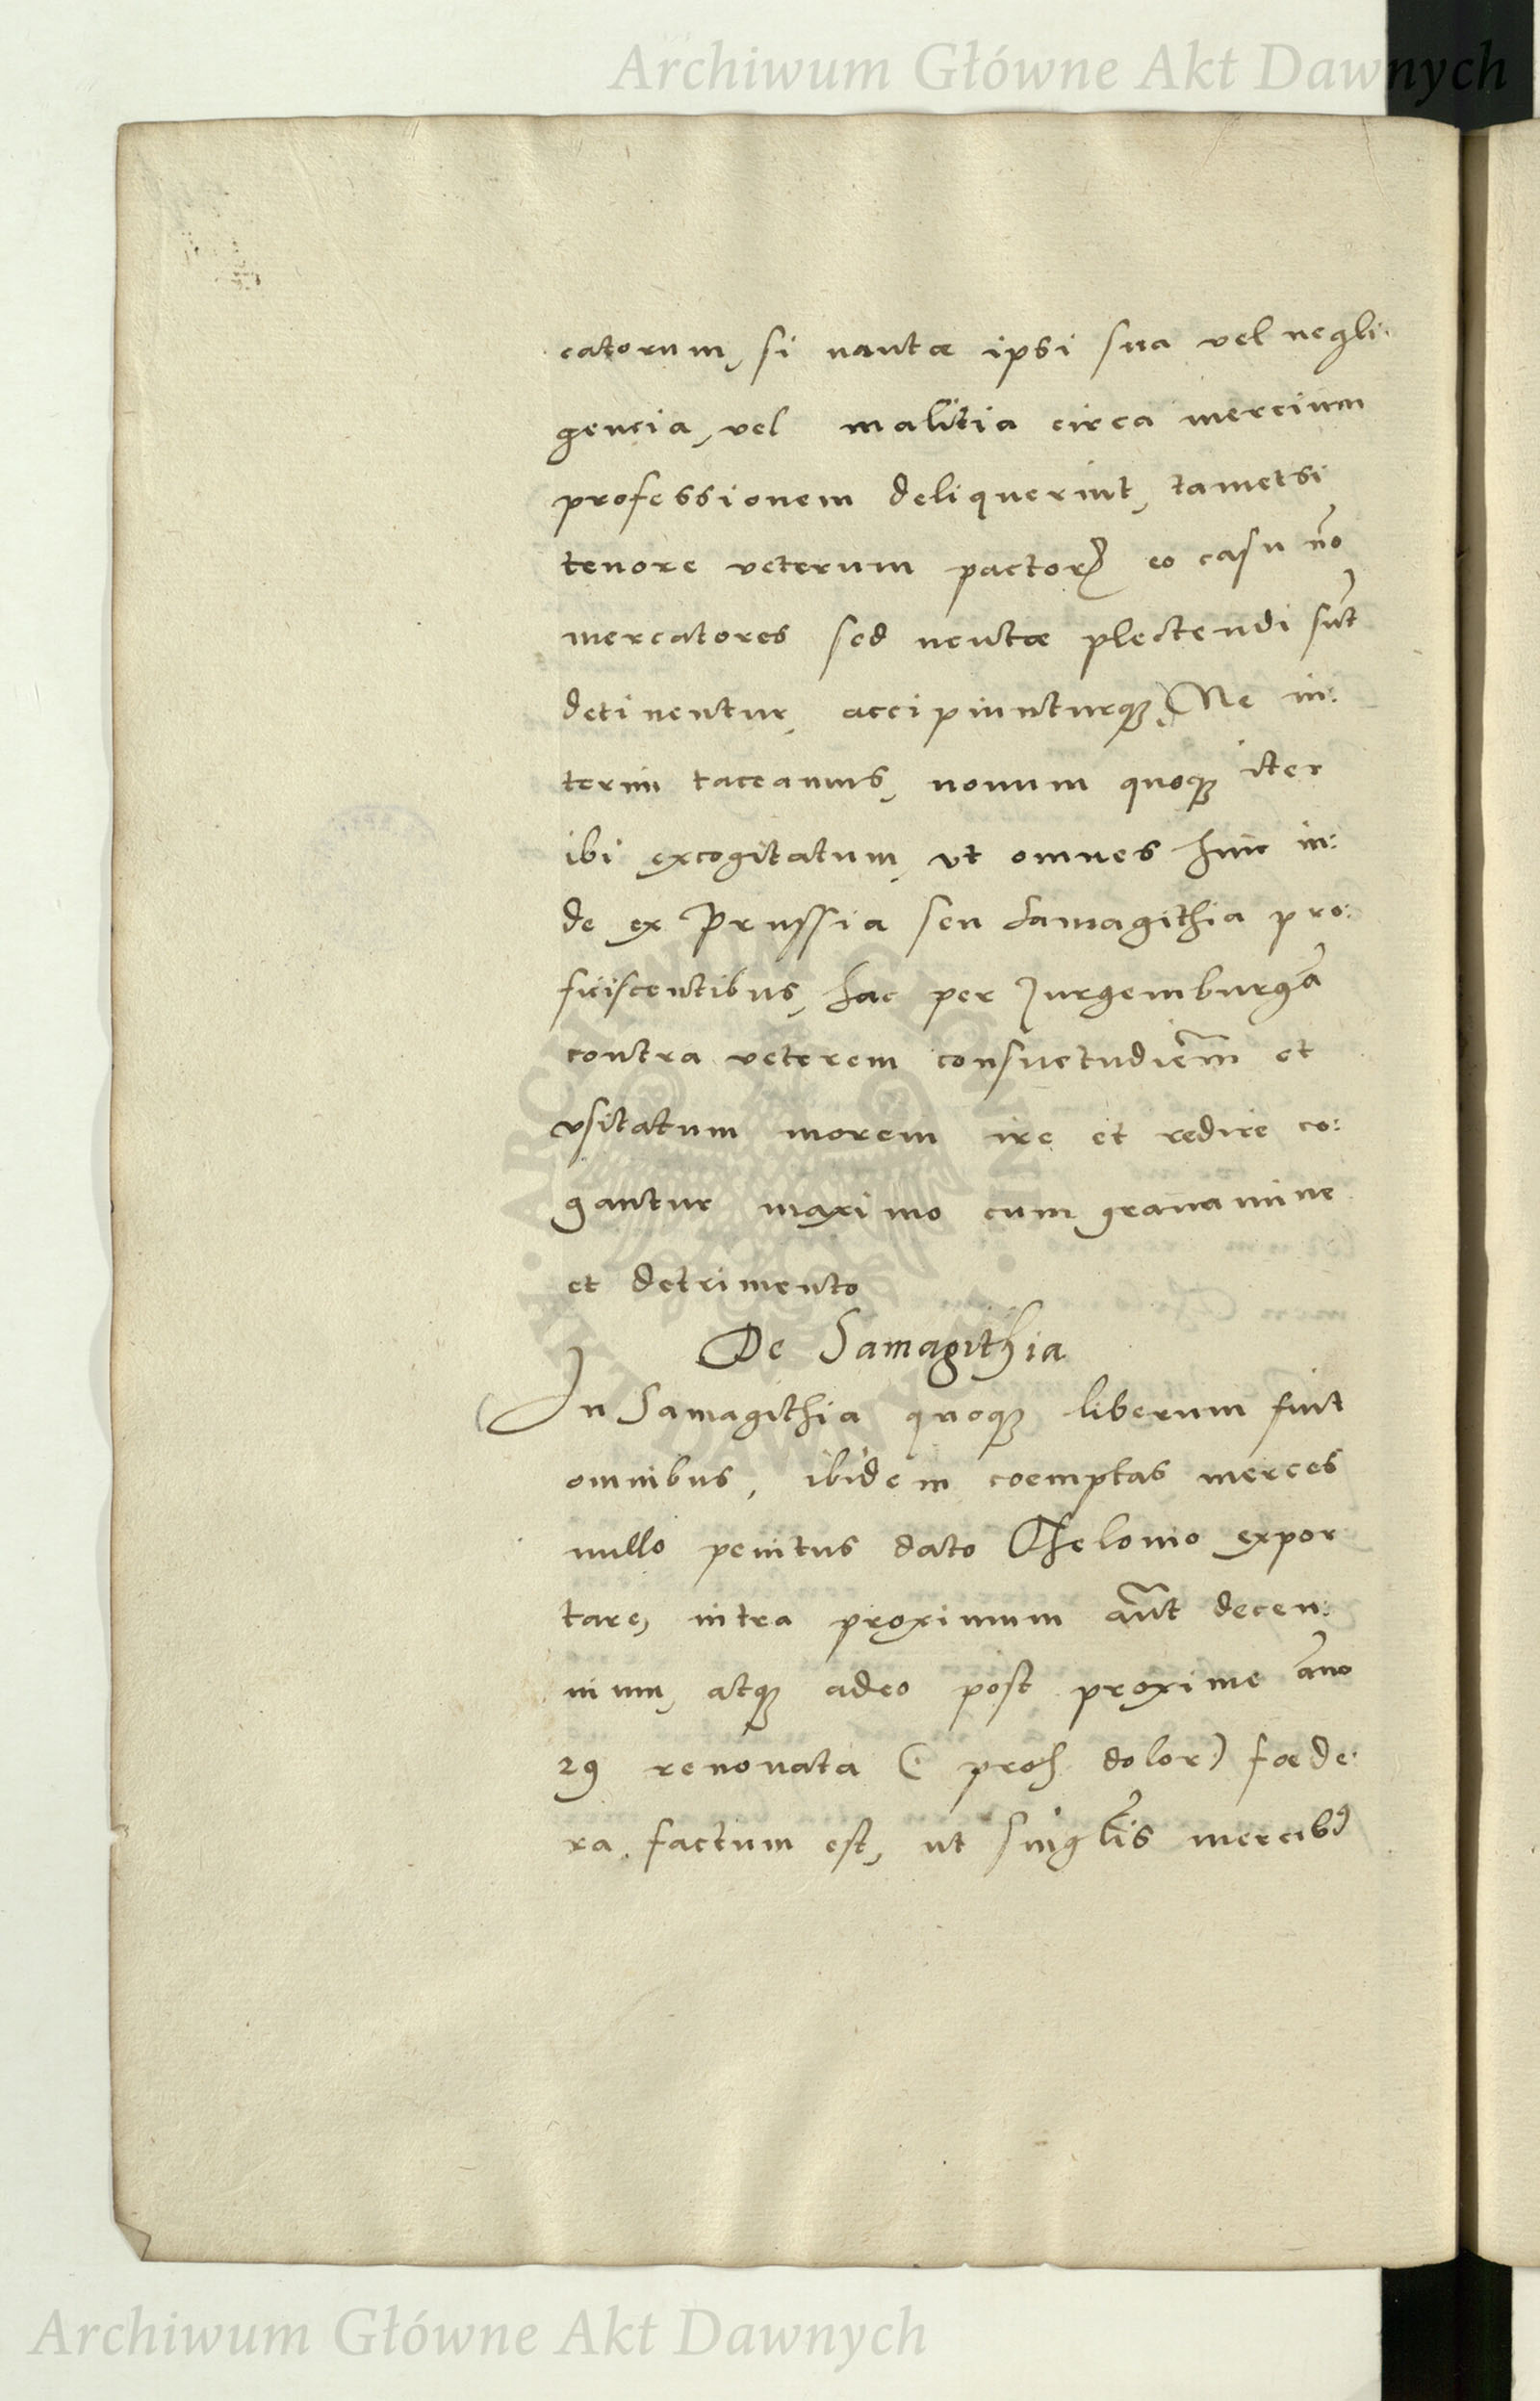 Archiwum Główne Akt Dawnych
catorum, si nautæ ipsi sua vel negli:
gencia, vel malitia circa mercium
professionem deliquerint, tametsi
tenore veterum pactorꝝ eo casu nõ
mercatores sed neutæ plectendi sũt
detinentur, accipiunturqꝫ, Ne in:
terim taceamus, nouum quoqꝫ iter
ibi excogitatum, vt omnes hinc in:
de ex Prussia seu Samagithia pro:
ficiscentibus, hac per Jurgemburgã
contra veterem consuetudiem̃ et
vsitatum morem ire et redire co:
gantur maximo cum grauamine
et detrimento
De Samagithia
In Samagithia quoqꝫ liberum fuit
omnibus, ibidem coemptas merces
nullo penitus dato Thelonio expor
tare, intra proximum aũt decen:
nium, atqꝫ adeo post proxime año
29 renouata (: proh dolor:) fœde:
ra factum est, ut singl̃is mercibꝰ
Archiwum Główne Akt Dawnych